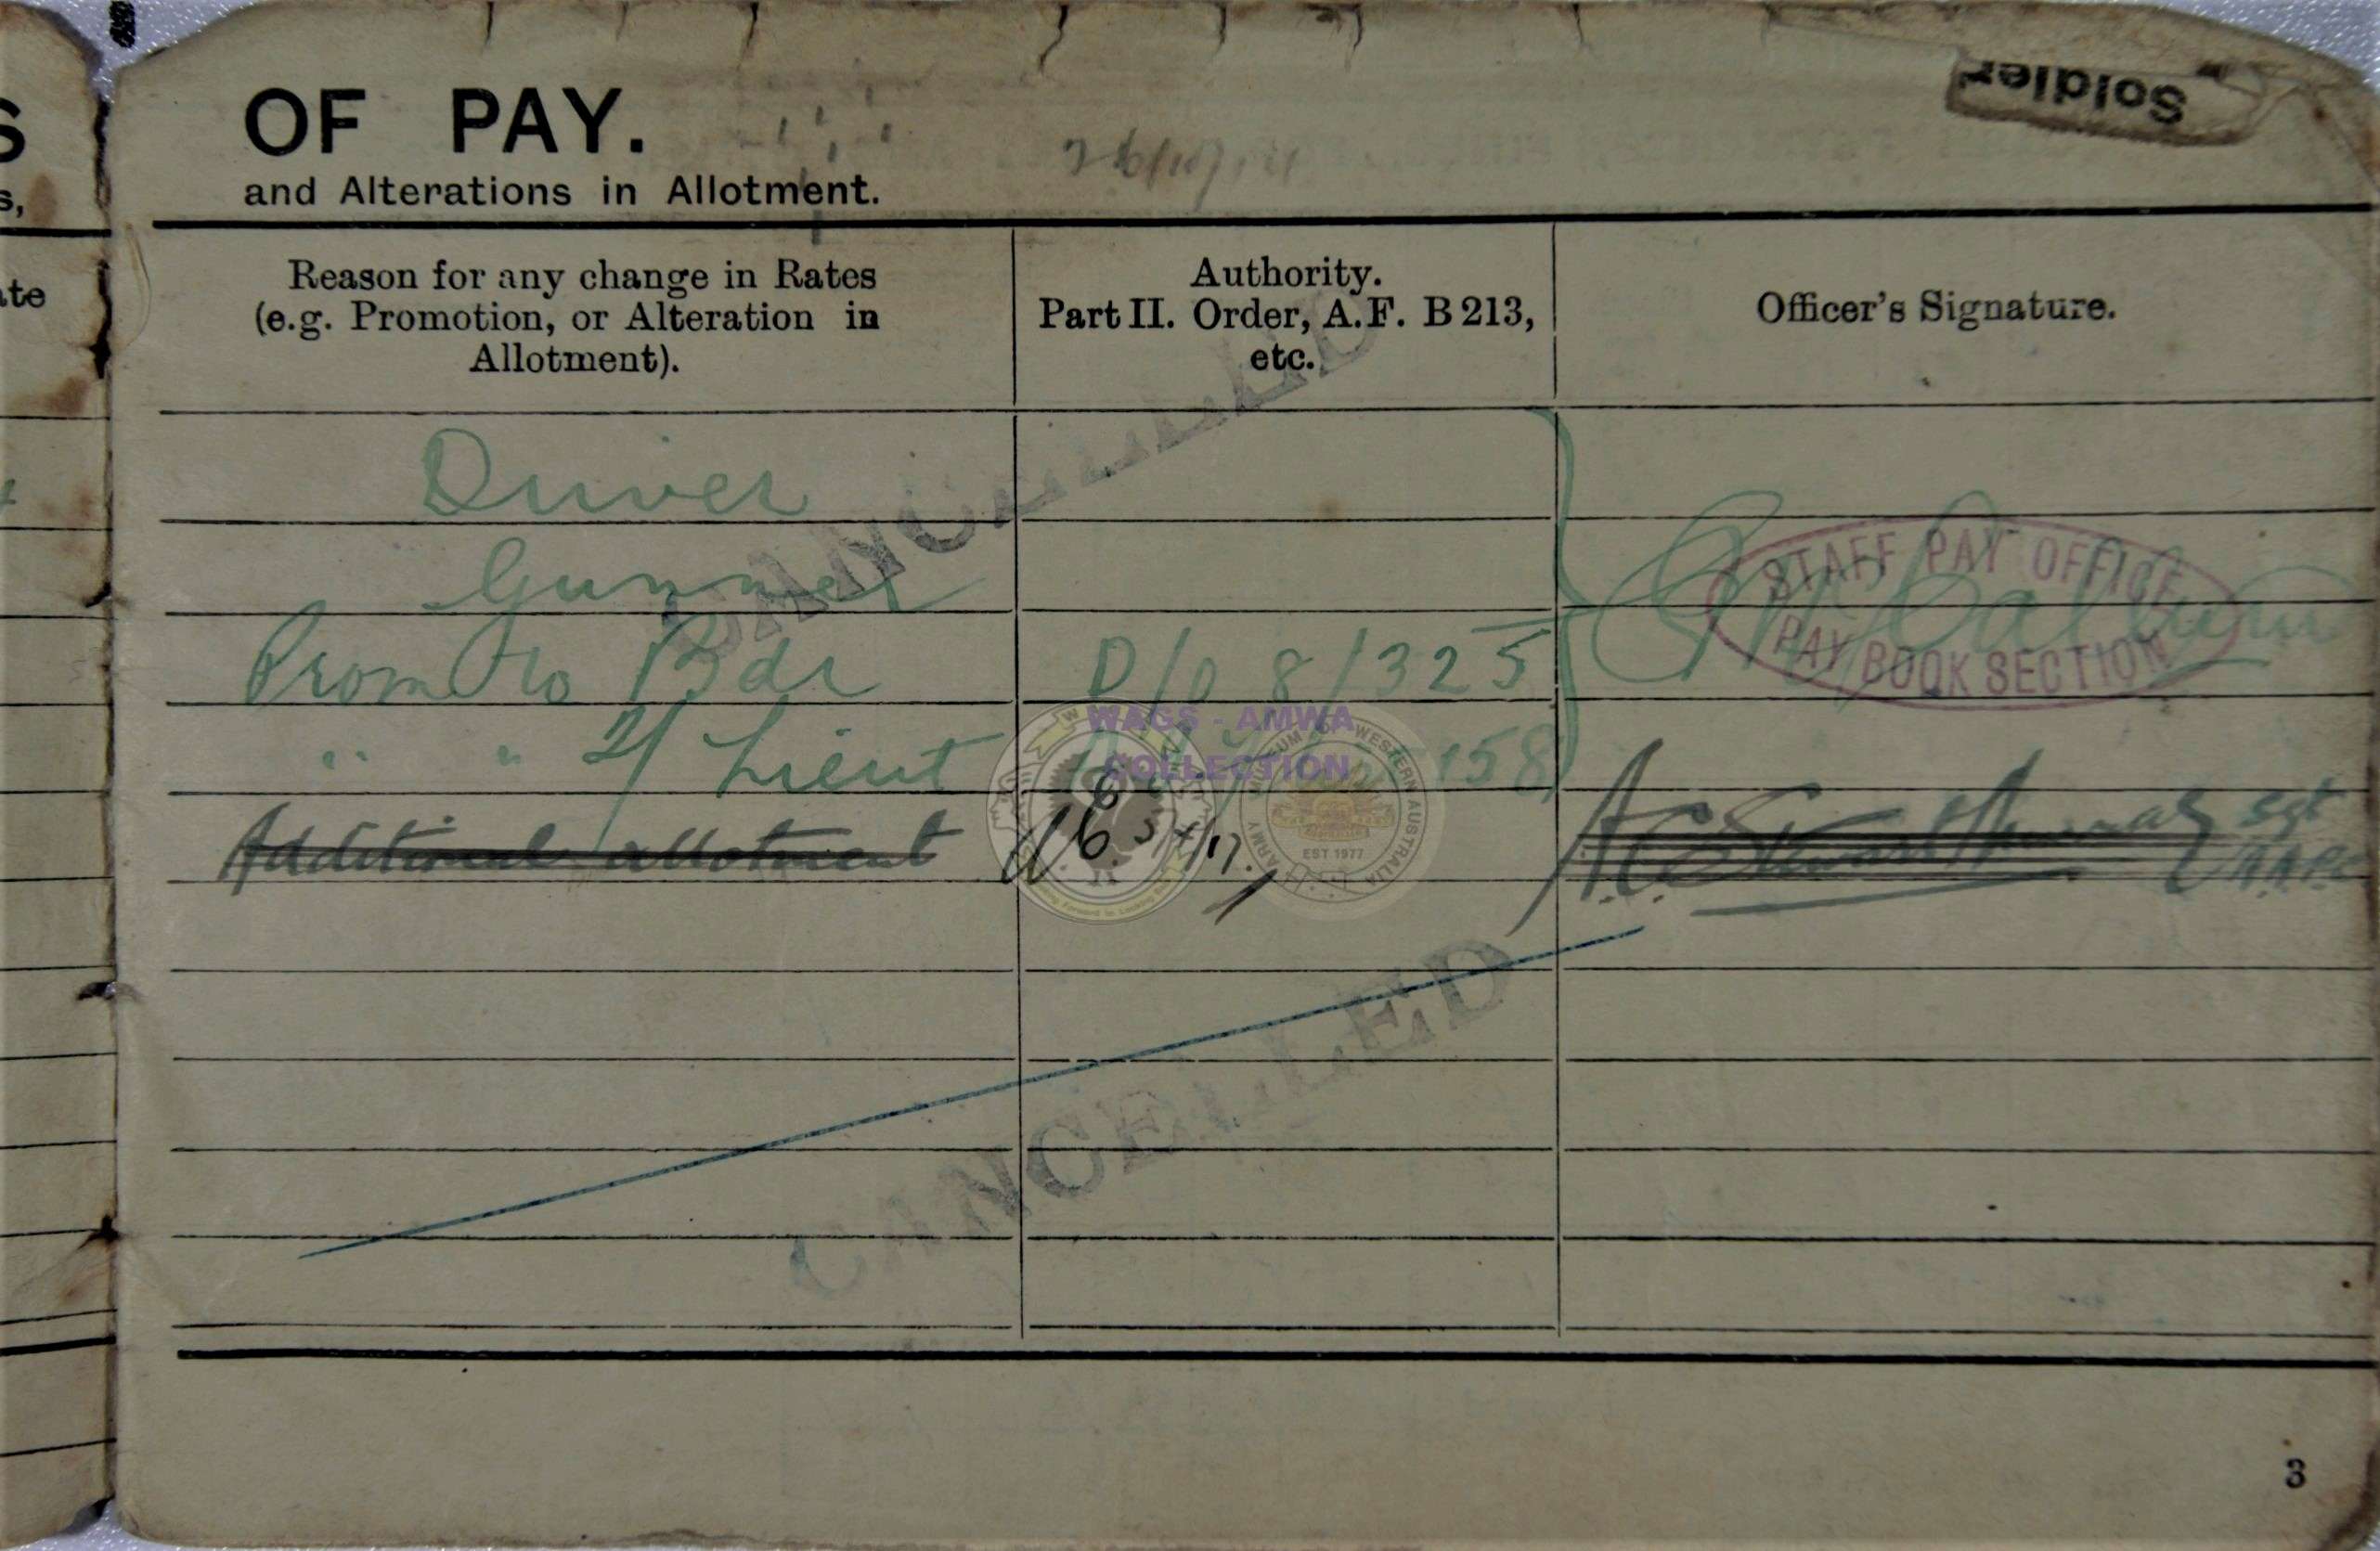 OF PAY.
and Alterations in Allotment.
Soldier
Reason for any change in Rates
(e.g. Promotion, or Alteration in
Allotment).
Authority.
Part II. Order, A.F. B 213,
etc.
Officer's Signature.
CANCELLED
Driver
Gunner
Prom to Bdr D/O 8/325
" " 2/Lieut 158
STAFF PAY OFFICE
PAY BOOK SECTION
WAGS - AMWA
COLLECTION
ARMY MUSEUM OF WESTERN AUSTRALIA
EST 1977
Additional allotment
Sgt
CANCELLED
3